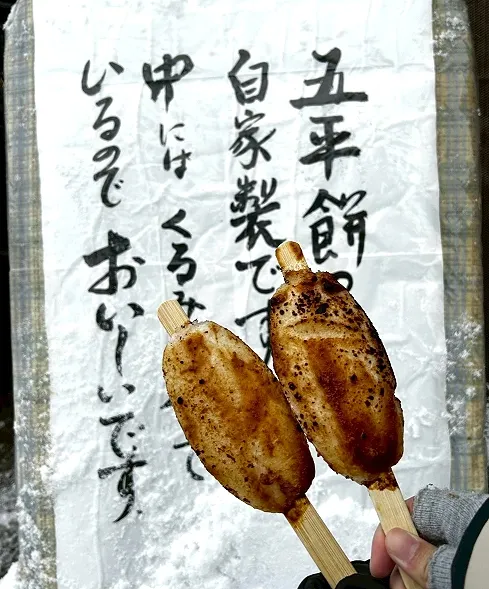 五平餅の
自家製です
中にはくるみ
いるので
おいしいです